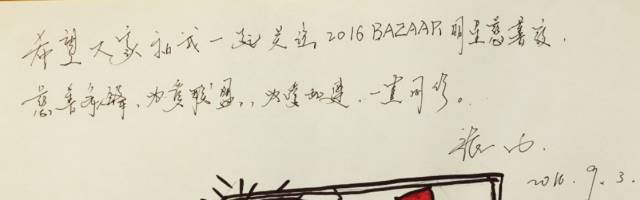 希望大家和我一起关注2016 BAZAAR 明星慈善夜,
慈善,为爱联盟,为爱加速,一直同行。
2016.9.3.